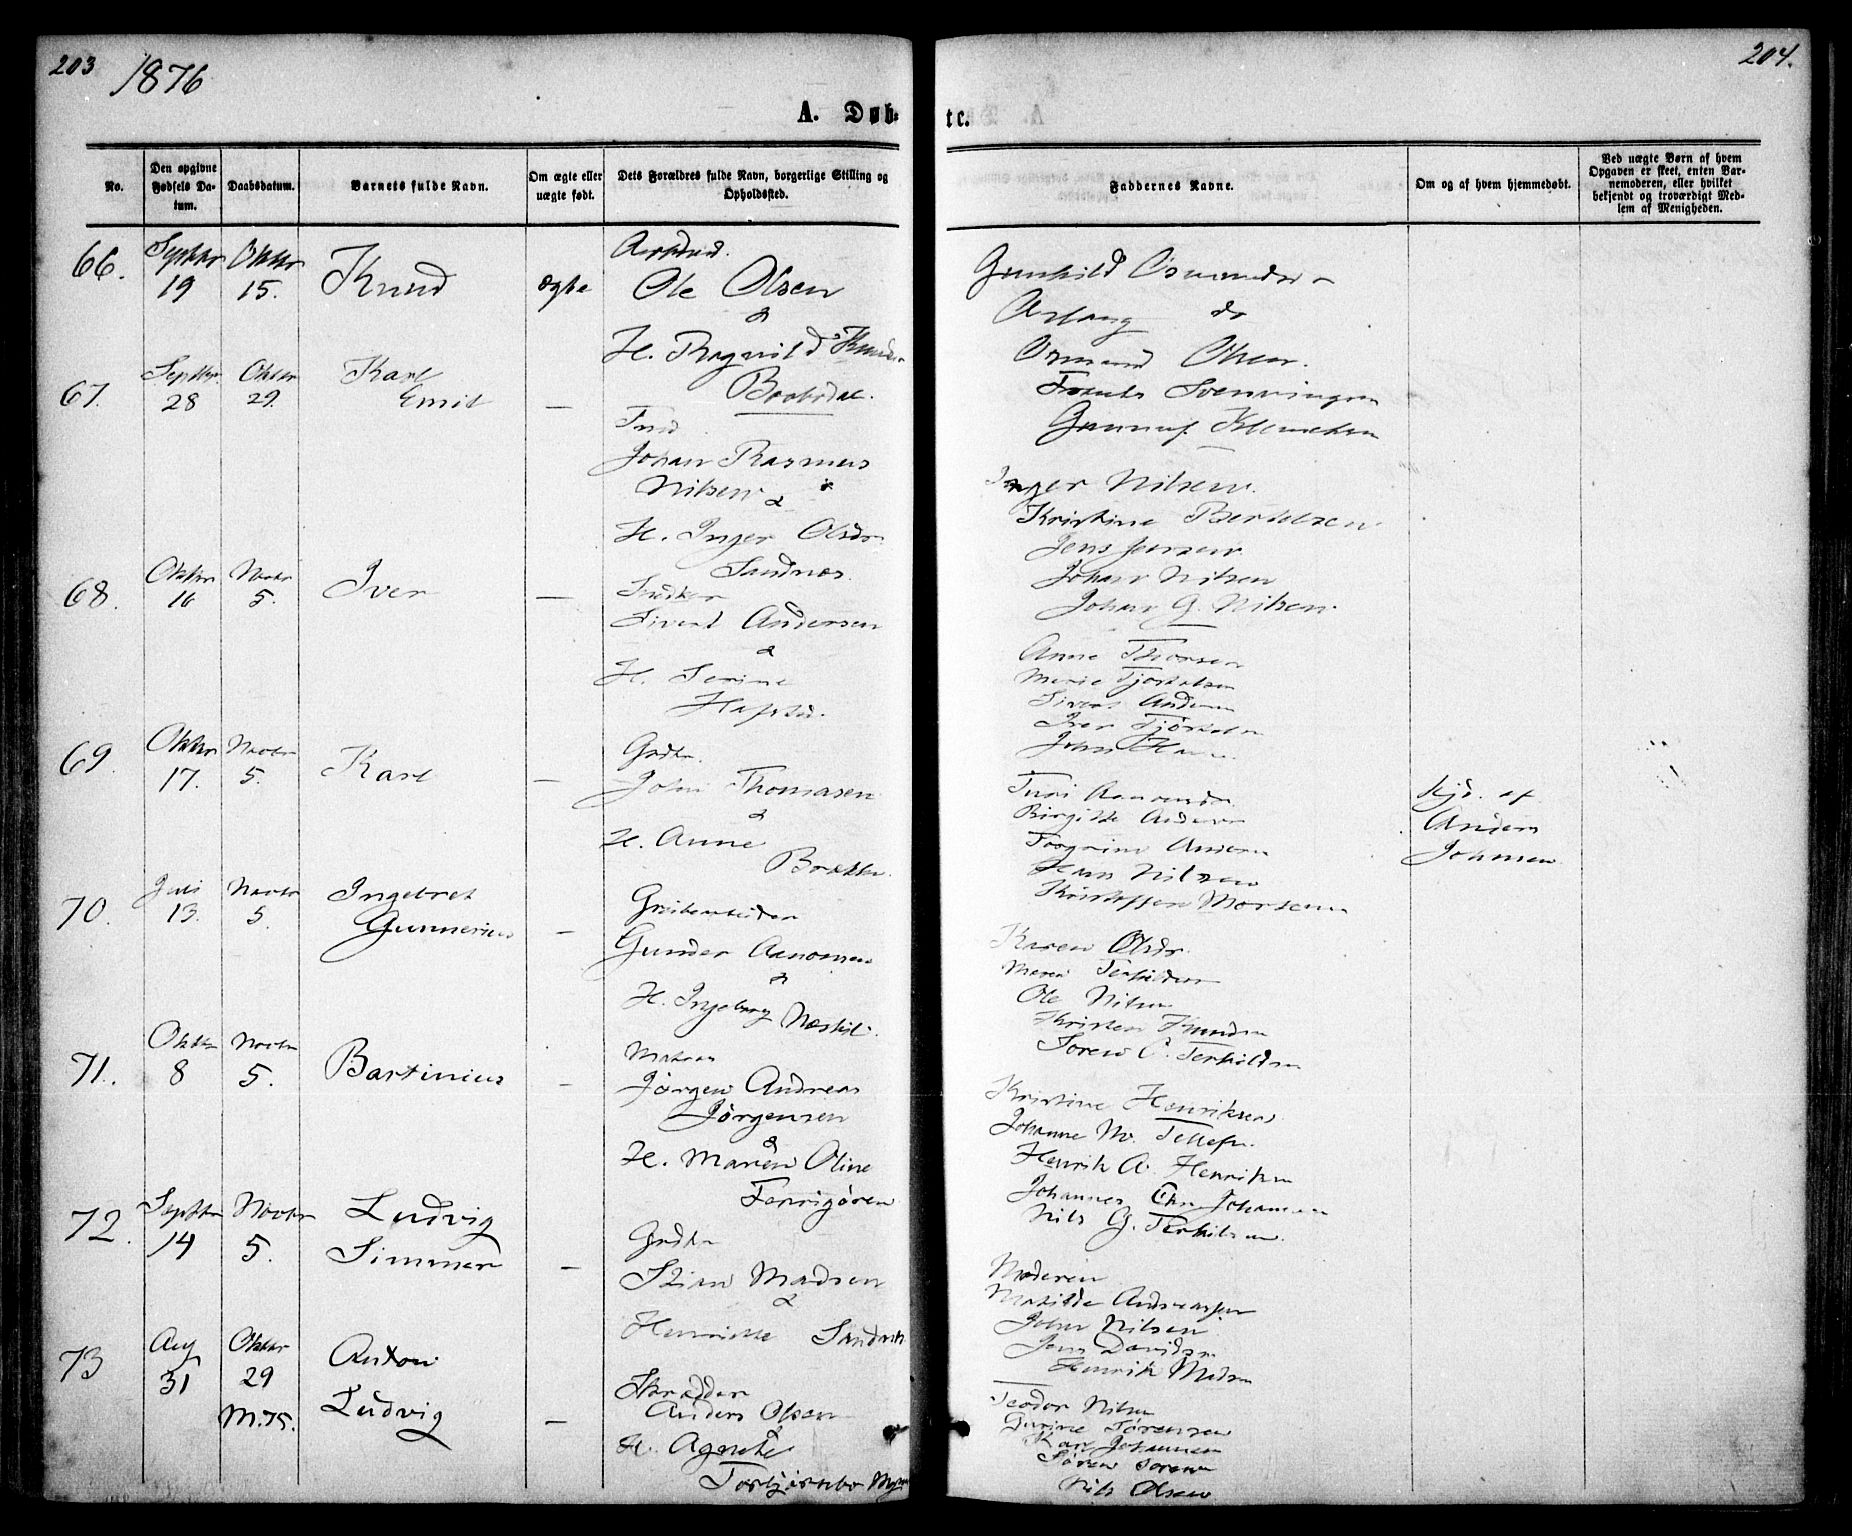 203
1876
A. Døb-
No.
Den opgivne Fødsels Da-tum.
Daabsdatum.
Barnets fulde Navn.
Om ægte eller uægte født.
Dets Forældres fulde Navn, borgerlige Stilling og Opholdssted.
66.
Septbr 19
Oktbr 15.
Knud
ægte
Ole Olsen
&
H. Ragnild Knudsdr
67.
Septbr 28
Oktbr 29.
Karl
Emil
—
Johan Rasmus
Nilsen &
H. Inger Olsdr
Sandnæs.
68.
Oktbr 16
Novbr 5.
Iver
—
Snedker
Sivert Andersen
&
H. Serine
69.
Oktbr 17.
Novbr 5.
Karl
—
Grdbr.
John Thomasen
&
H. Anne
Brække.
70.
Juli 13.
Novbr 5
Ingebret
Gunnerius
—
Grubearbeider
Gunder Aanonsen
&
H. Ingeborg Næskil.
71.
Oktbr 8
Novbr 5.
Bartinius
—
Matros
Jørgen Andreas
Jørgensen
&
H. Maren Oline
72.
Septbr 14
Novbr 5.
Ludvig
Simmer
—
Grdbr
Stian Madsen
&
Henriette Sandvik
73
Aug 31
Oktbr 29
M. 75.
Anton
Ludvig
—
Skrædder
Anders Olsen
&
H. Agnete
204.
te.
Faddernes Navne.
Om og af hvem hjemmedøbt.
Ved uægte Børn af hvem
Opgaven er skeet, enten Bar-
nemoderen, eller hvilket
bekjendt og troværdigt Med-
lem af Menigheden.
Gunhild Osmundsdr
Aslaug do
Osmund Olsen.
Svenningsen
Gunnuf
Inger Nilsen.
Kristine Bertelsen.
Jens Jensen
Johan Nilsen
Johan G. Nilsen.
Anne Thorsen
Marie Tjostolsen
Sivert Andersen
Iver Tjostolsen
John
Birgitte Andersen
Torgrim Andersen
Hans Nilsen
Kristoffer Mortensen
Hjd. af
Anders
Johnsen
Karen Olsdr.
Maren Terkildsen
Ole Nilsen
Kristen Knudsen
Søren C. Terkildsen
Kristine Henriksen
Johanne M. Tellefsn.
Henrik A. Henriksen
Johannes Chr. Johannsen
Nils G. Terkilsen.
Moderen
Matilde Andreassen
John Nilsen
Jens Davidsen
Henrik Madsen
Teodor Nilsen
Gurine Sørensen
Karl Johannesen
Søren Sørensen
Nils Olsen